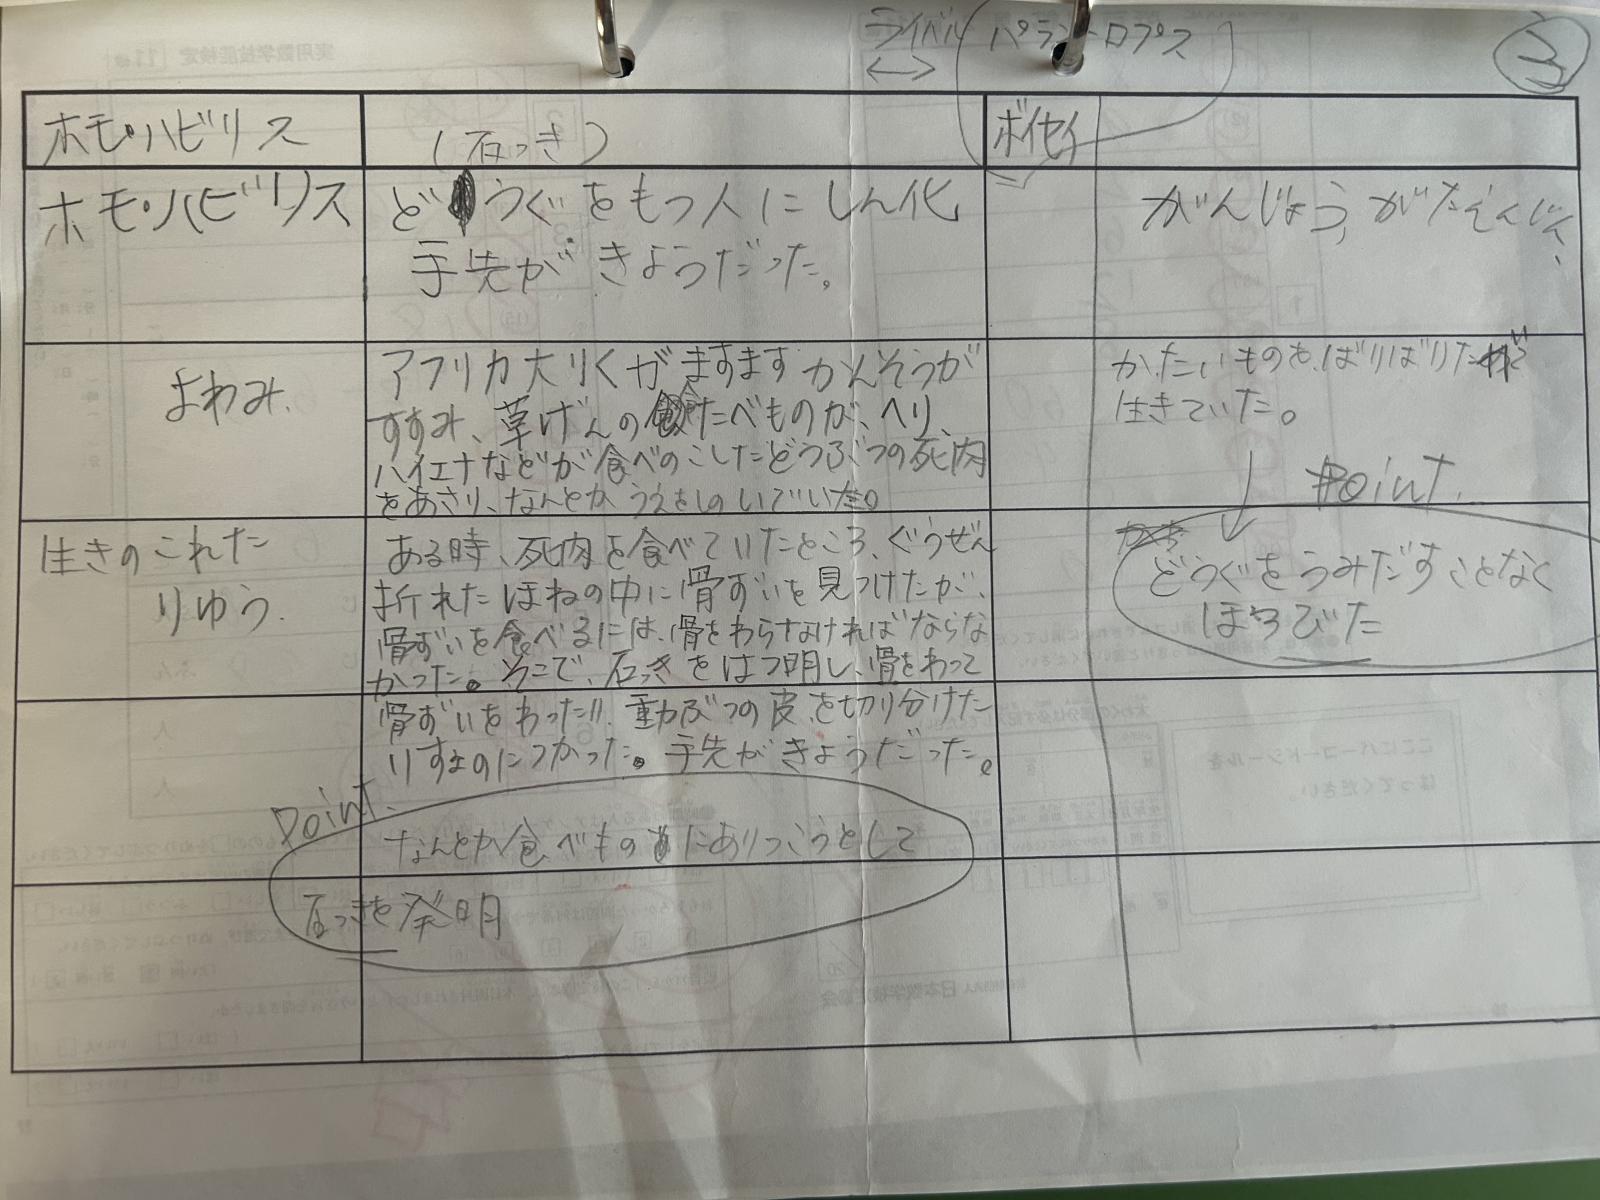 ライバル
↔
パラントロプス
③
ホモ・ハビリス
(石っき)
ボイセイ
ホモ・ハビリス
どうぐをもつ人にしん化
手先がきようだった。
がんじょうがたえんじん、
よわみ.
アフリカ大りくがますますかんそうが
すすみ、草げんのたべものが、へり、
ハイエナなどが食べのこしたどうぶつの死肉
をあさり、なんとかうえをしのいでいた。
かたいものをばりばりたべ
生きていた。
↓ Point.
生きのこれた
りゆう.
ある時、死肉を食べていたところ、ぐうぜん
折れたほねの中に骨ずいを見つけたが、
骨ずいを食べるには、骨をわらなければならな
かった。そこで、石っきをはつ明し、骨をわって
骨ずいをわった!!動ぶつの皮を切り分けた
りするのにつかった。手先がきようだった。
どうぐをうみだすことなく
ほろびた
Point.
なんとか食べものにありつこうとして
石っきを発明